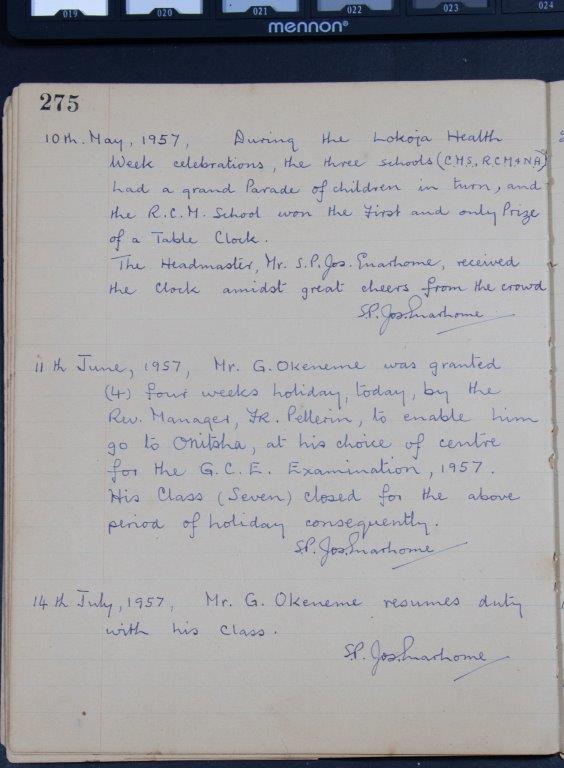 019 020 021 022 023 024
mennon®
275
10th. May, 1957, During the Lokoja Health
Week celebrations, the three schools (C.M.S., R.C.M & N.A)
had a grand Parade of children in turn, and
the R.C.M. School won the First and only Prize
of a Table Clock.
The Headmaster, Mr. S.P. Jos. Enarhome, received
the Clock amidst great cheers from the crowd
S.P. Jos. Enarhome
11th June, 1957, Mr. G. Okeneme was granted
(4) four weeks holiday, today, by the
Rev. Manager, FR. Pellerin, to enable him
go to Onitsha, at his choice of centre
for the G.C.E. Examination, 1957.
His Class (Seven) closed for the above
period of holiday consequently.
S.P. Jos. Enarhome
14th July, 1957, Mr. G. Okeneme resumes duty
with his Class.
S.P. Jos. Enarhome